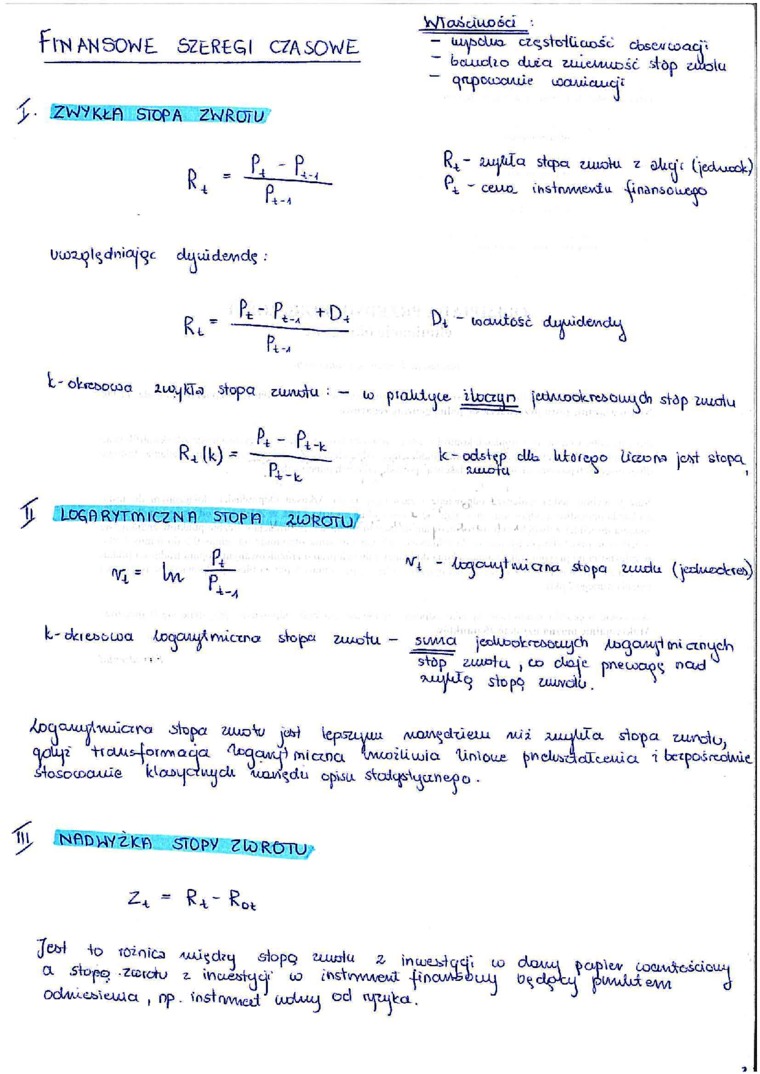 FINANSOWE SZEREGI CZASOWE
Właściwości :
- wysoka częstotliwość obserwacji
- bardzo duża zmienność stóp zwrotu
- grupowanie wariancji
I. ZWYKŁA STOPA ZWROTU
R_t = (P_t - P_{t-1}) / P_{t-1}
R_t - zwykła stopa zwrotu z akcji (jednook)
P_t - cena instrumentu finansowego
uwzględniając dywidendę :
R_t = (P_t - P_{t-1} + D_t) / P_{t-1}
D_t - wartość dywidendy
k-okresowa zwykła stopa zwrotu : - w praktyce iloczyn jednookresowych stóp zwrotu
R_t(k) = (P_t - P_{t-k}) / P_{t-k}
k - odstęp dla którego liczona jest stopa
zwrotu
II LOGARYTMICZNA STOPA ZWROTU
r_t = ln P_t / P_{t-1}
r_t - logarytmiczna stopa zwrotu (jednookres)
k-okresowa logarytmiczna stopa zwrotu - suma jednookresowych logarytmicznych
stóp zwrotu, co daje przewagę nad
zwykłą stopą zwrotu.
Logarytmiczna stopa zwrotu jest lepszym narzędziem niż zwykła stopa zwrotu,
gdyż transformacja logarytmiczna umożliwia liniowe przekształcenia i bezpośrednie
stosowanie klasycznych narzędzi opisu statystycznego.
III NADWYŻKA STOPY ZWROTU
Z_t = R_t - R_{0t}
Jest to różnica między stopą zwrotu z inwestycji w dany papier wartościowy
a stopą zwrotu z inwestycji w instrument finansowy będący punktem
odniesienia, np. instrument wolny od ryzyka.